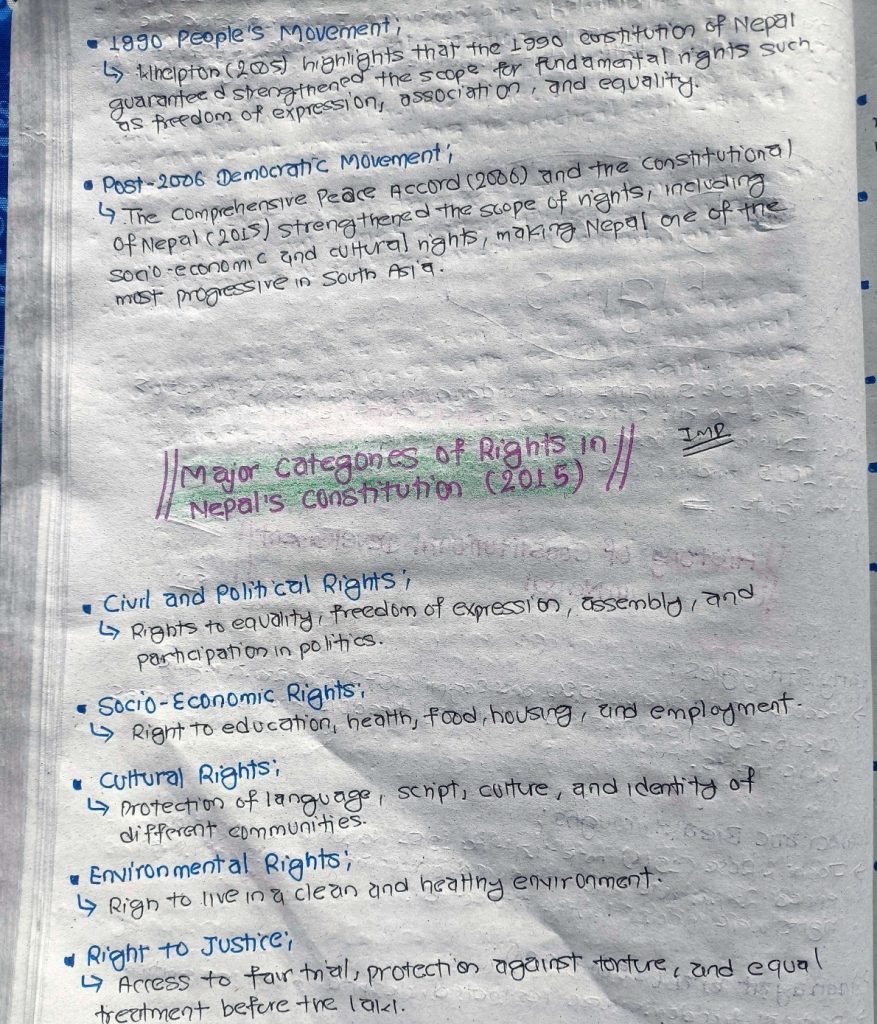 • 1990 People's Movement;
↳ Whelpton (2005) highlights that the 1990 constitution of Nepal
guaranteed strengthened the scope for fundamental rights such
as freedom of expression, association, and equality.
• Post-2006 Democratic Movement;
↳ The Comprehensive Peace Accord (2006) and the Constitutional
of Nepal (2015) strengthened the scope of rights, including
socio-economic and cultural rights, making Nepal one of the
most progressive in South Asia.
Major Categories of Rights in
Nepal's Constitution (2015)
IMP
• Civil and Political Rights;
↳ Rights to equality, freedom of expression, assembly, and
participation in politics.
• Socio-Economic Rights;
↳ Right to education, health, food, housing, and employment.
• Cultural Rights;
↳ Protection of language, script, culture, and identity of
different communities.
• Environmental Rights;
↳ Righ to live in a clean and healthy environment.
• Right to Justice;
↳ Access to fair trial, protection against torture, and equal
treatment before the law.